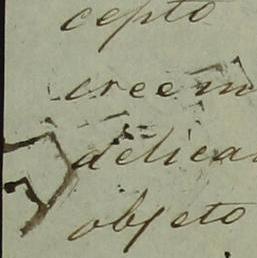 cepto
creem
delica
objeto